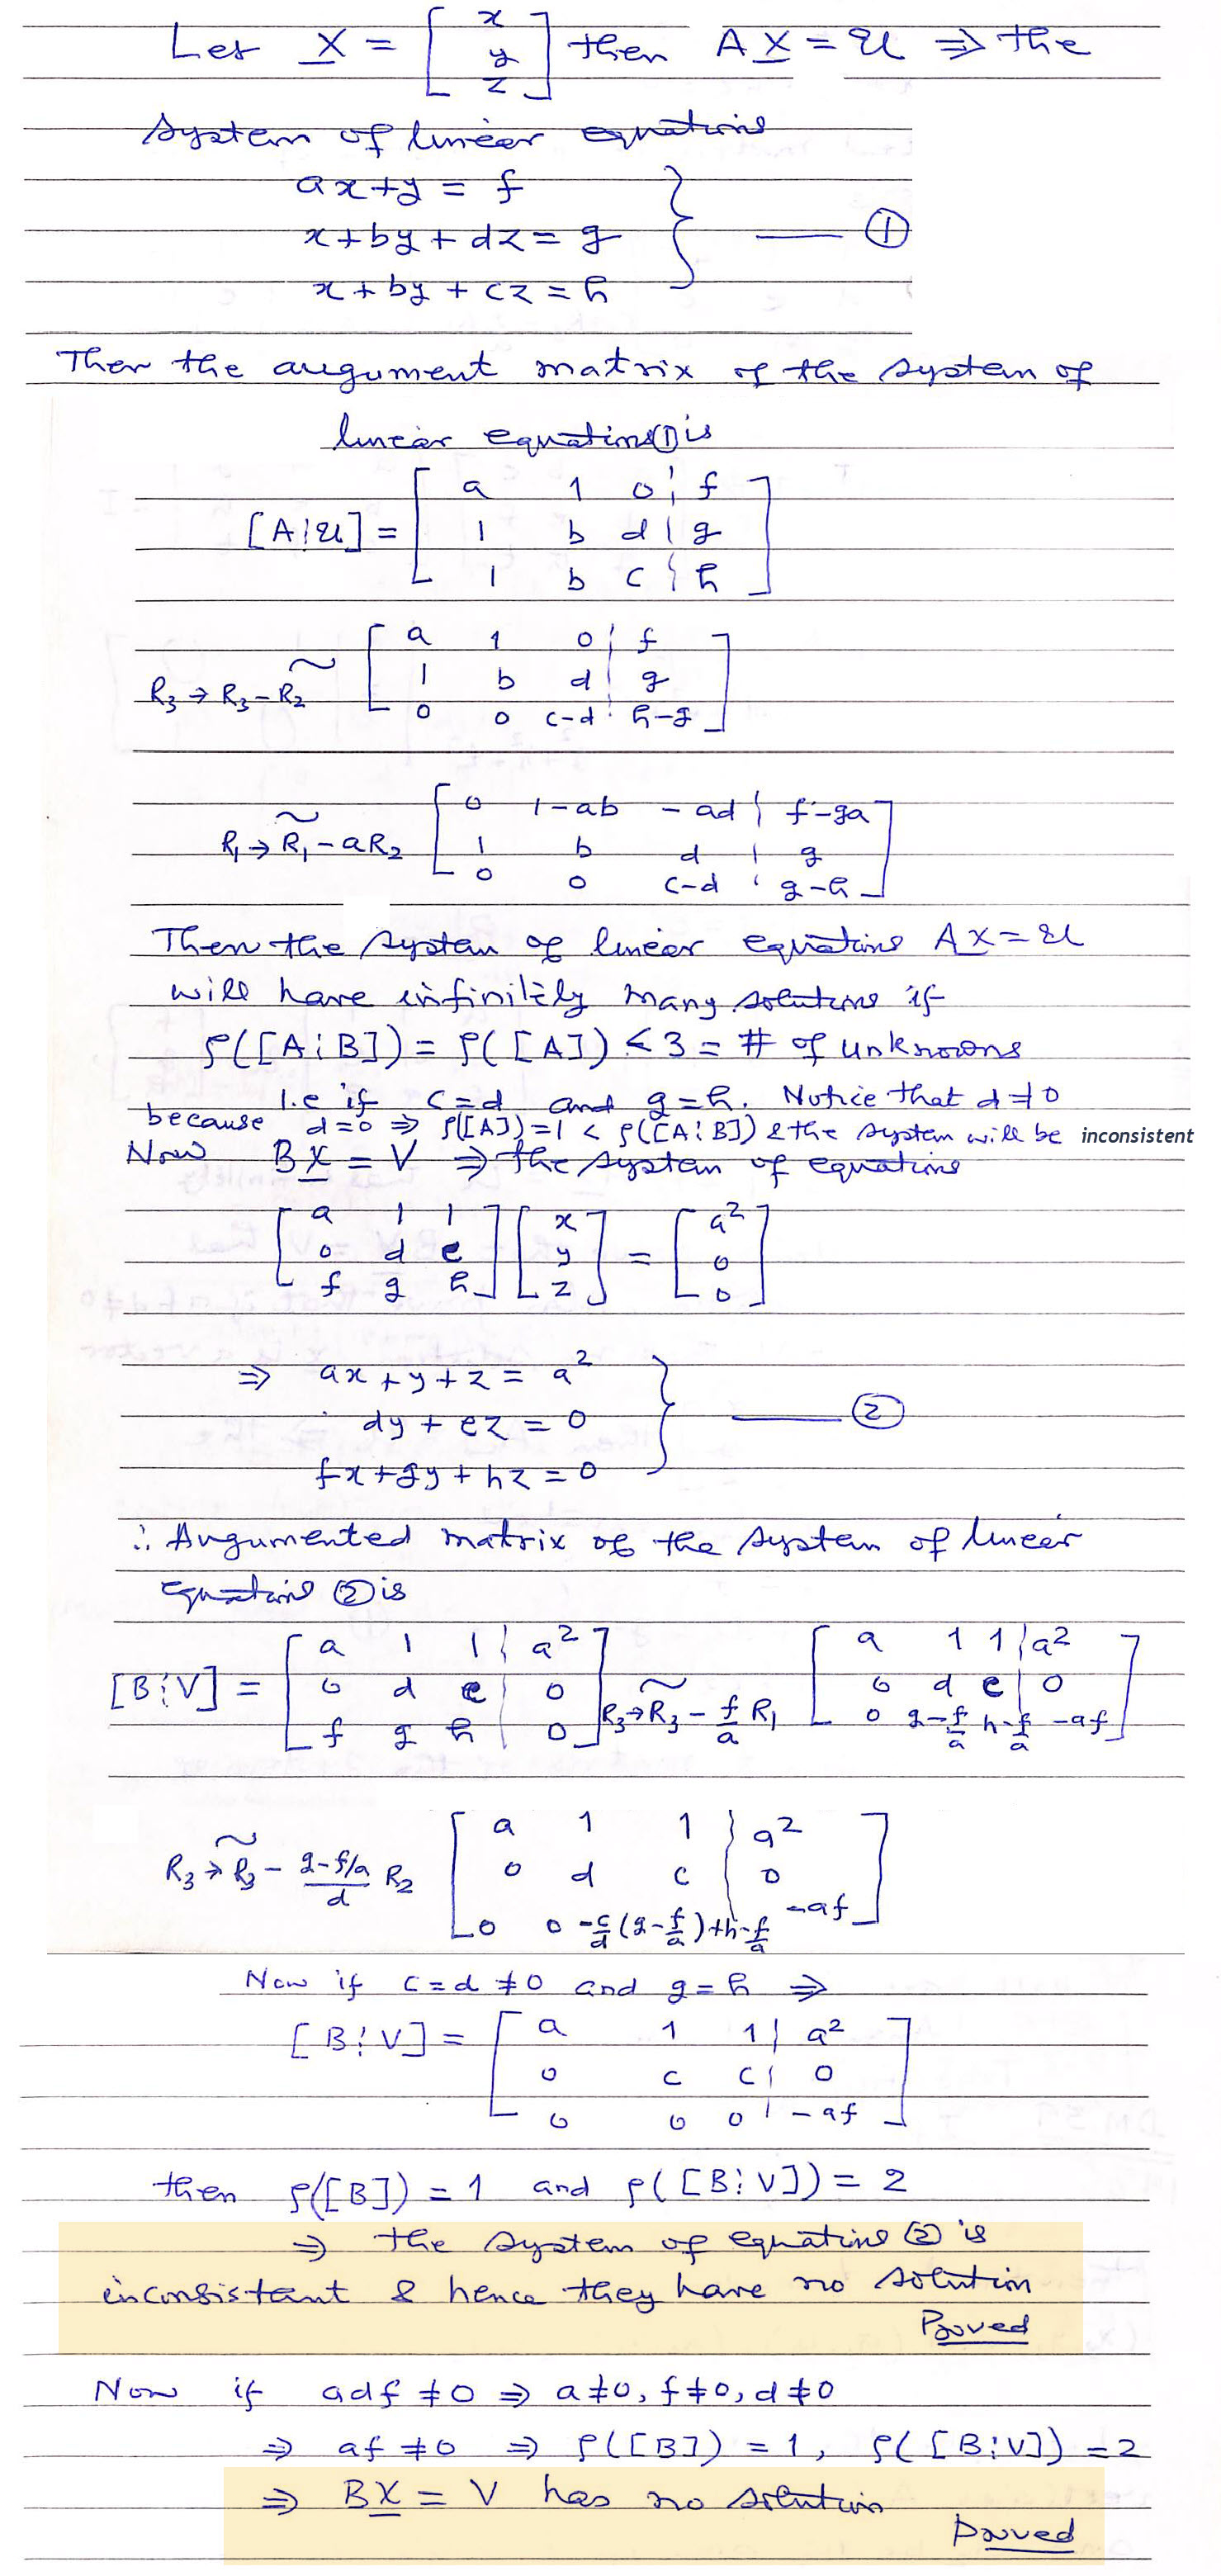 Let X = [ x y z ] then AX = U ⇒ the
System of linear equations
ax+y = f
x+by+dz = g } —— ①
x+by+cz = h
Then the augument matrix of the system of
linear equations(1) is
[A¦U] = [ a 1 0 ¦ f
1 b d ¦ g
1 b c ¦ h ]
R₃→R₃-R₂ ~ [ a 1 0 ¦ f
1 b d ¦ g
0 0 c-d ¦ h-g ]
R₁→R₁-aR₂ ~ [ 0 1-ab -ad ¦ f-ga
1 b d ¦ g
0 0 c-d ¦ g-h ]
Then the system of linear equations AX = U
will have infinitely many solutions if
ρ([A¦B]) = ρ([A]) < 3 = # of unknowns
i.e if c=d and g=h. Notice that d≠0
because d=0 ⇒ ρ([A])=1 < ρ([A¦B]) & the system will be inconsistent
Now BX = V ⇒ the system of equations
[ a 1 1
0 d e
f g h ] [ x y z ] = [ a² 0 0 ]
⇒ ax+y+z = a²
dy+ez = 0 } —— ②
fx+gy+hz = 0
∴ Augumented matrix of the system of linear
equations ② is
[B¦V] = [ a 1 1 ¦ a²
0 d e ¦ 0
f g h ¦ 0 ] ~ R₃→R₃-f/a R₁ [ a 1 1 ¦ a²
0 d e ¦ 0
0 g-f/a h-f/a -af ]
R₃→R₃ - (g-f/a)/d R₂ ~ [ a 1 1 ¦ a²
0 d c ¦ 0
0 0 -c/d(g-f/a)+h-f/a -af ]
Now if c=d≠0 and g=h ⇒
[B¦V] = [ a 1 1 ¦ a²
0 c c ¦ 0
0 0 0 ¦ -af ]
then ρ([B]) = 1 and ρ([B¦V]) = 2
⇒ the system of equations ② is
inconsistant & hence they have no solution
Proved
Now if adf ≠ 0 ⇒ a≠0, f≠0, d≠0
⇒ af ≠ 0 ⇒ ρ([B]) = 1, ρ([B¦V]) = 2
⇒ BX = V has no solution
Proved